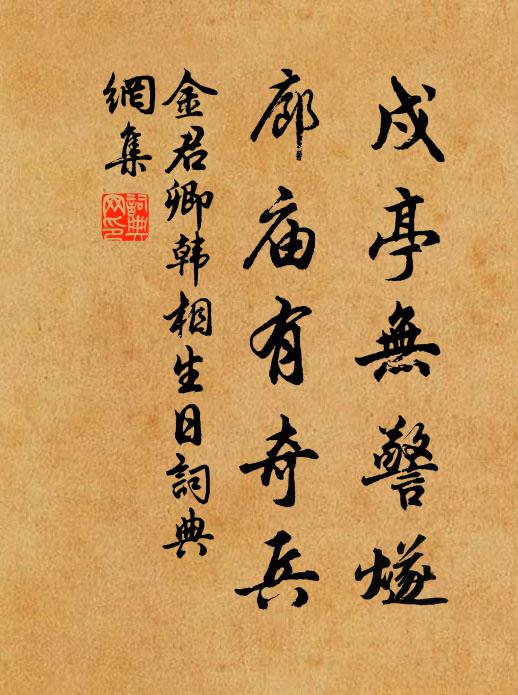 戍亭無警燧
廊庙有奇兵
金君卿韩相生日詞典
網集
詞典网印